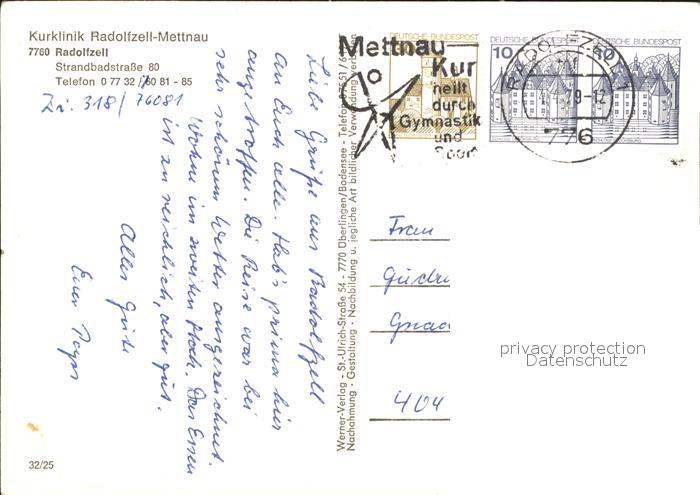 Kurklinik Radolfzell-Mettnau
7760 Radolfzell
Strandbadstraße 80
Telefon 0 77 32 / 60 81 - 85
Zi. 318 / 76081
Liebe Grüße aus Radolfzell
an Euch alle. Hab's prima hier
angetroffen. Die Reise war bei
sehr schönem Wetter ausgezeichnet.
Wohne im zweiten Stock. Das Essen
ist zu reichlich, aber gut.
Alles Gute
Euer
32/25
Werner-Verlag - St.-Ulrich-Straße 54 - 7770 Überlingen/Bodensee - Telefon 07551/
Nachahmung · Gestaltung · Nachbildung u. jegliche Art bildlicher Verwendung verboten
Mettnau
Kur
heilt
durch
Gymnastik
und
Sport
DEUTSCHE BUNDESPOST
DEUTSCHE BUNDESPOST
DEUTSCHE BUNDESPOST
10
10
RADOLFZELL
776
Frau
Gudru
Gnad
404
privacy protection
Datenschutz